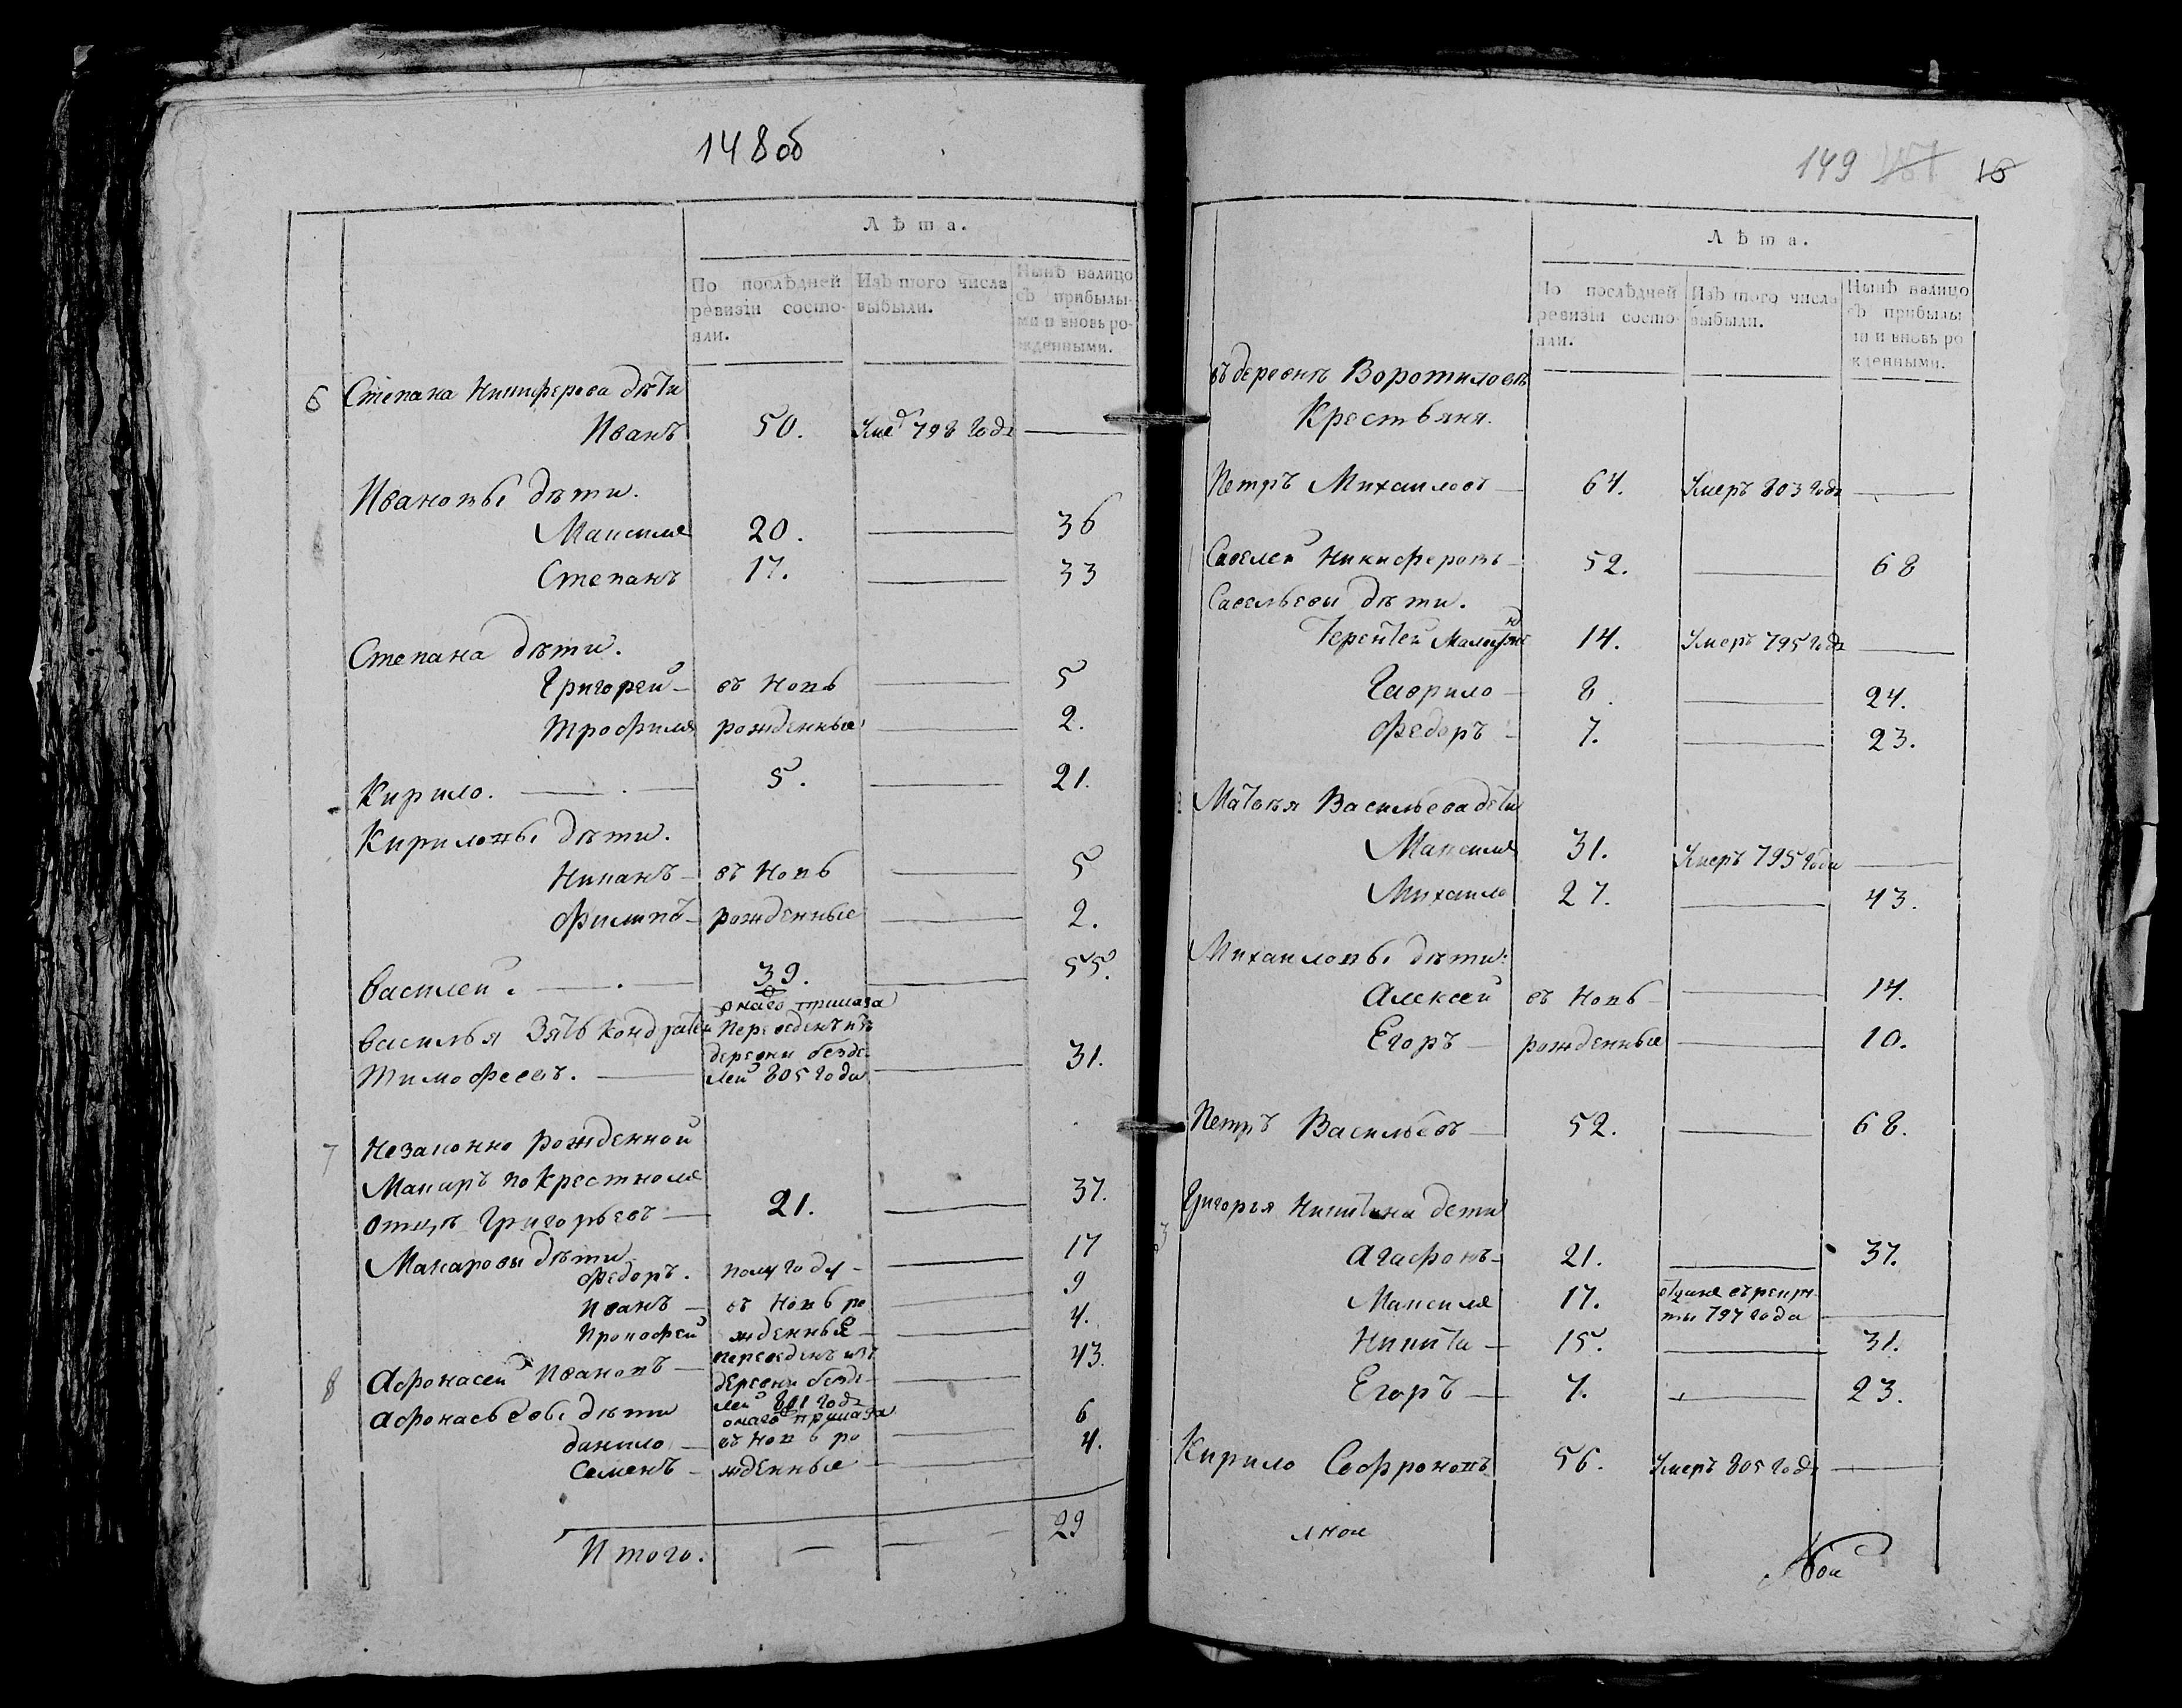 148 об
Лѣта.
По послѣдней ревизіи состояли.
Изъ того числа выбыли.
Нынѣ налицо съ прибылыми и вновь рожденными.
6 Степана Никиферова дѣти
Иванъ 50. Уме 798 года —
Ивановы дѣти.
Максимъ 20. — 36
Степанъ 17. — 33
Степана дѣти.
Григорей — въ новь — 5
Трофимъ рожденные — 2.
Кирило. — 5. — 21.
Кириловы дѣти.
Никанъ — въ новь — 5
Филипъ — рожденные — 2.
Василей. — 39. — 55.
онаго приказа
Василья зять Кондратей переведенъ изъ
деревни безде-
Тимофеевъ. — лей 805 года — 31.
7 Незаконно рожденной
Макаръ по крестномъ
отцѣ Григорьевъ — 21. — 37.
Макаровы дѣти
Федоръ. полугоду — 17
Иванъ — въ новь ро — 9
Прокофей жденные — 4.
8 Афонасей Ивановъ — переведенъ изъ деревни безде- — 43.
Афонасьевы дѣти лей 801 года
онаго приказа
Данило — въ новь ро — 6
Семенъ — жденные — 4.
Итого. — — 29
149 18
Лѣта.
По послѣдней ревизіи состояли.
Изъ того числа выбыли.
Нынѣ налицо съ прибылыми и вновь рожденными.
въ деревнѣ Воротиловѣ
Крестьяня.
Петръ Михаиловъ — 64. Умеръ 803 года —
1 Савелей Никиферовъ — 52. — 68
Савельевы дѣти.
Терентей 14. Умеръ 795 года —
Гаврило — 8. — 24.
Федоръ — 7. — 23.
2 Матвѣя Васильева дѣти
Максимъ 31. Умеръ 795 года —
Михаило 27. — 43.
Михаиловы дѣти.
Алексей въ новь — 14.
Егоръ — рожденные — 10.
Петръ Васильевъ — 52. — 68.
3 Григорья Никитина дети
Агафонъ — 21. — 37.
Максимъ 17. отданъ въ рекру-
ты 797 года —
Никита — 15. — 31.
Егоръ — 7. — 23.
Кирило Софроновъ 56. Умеръ 805 года —